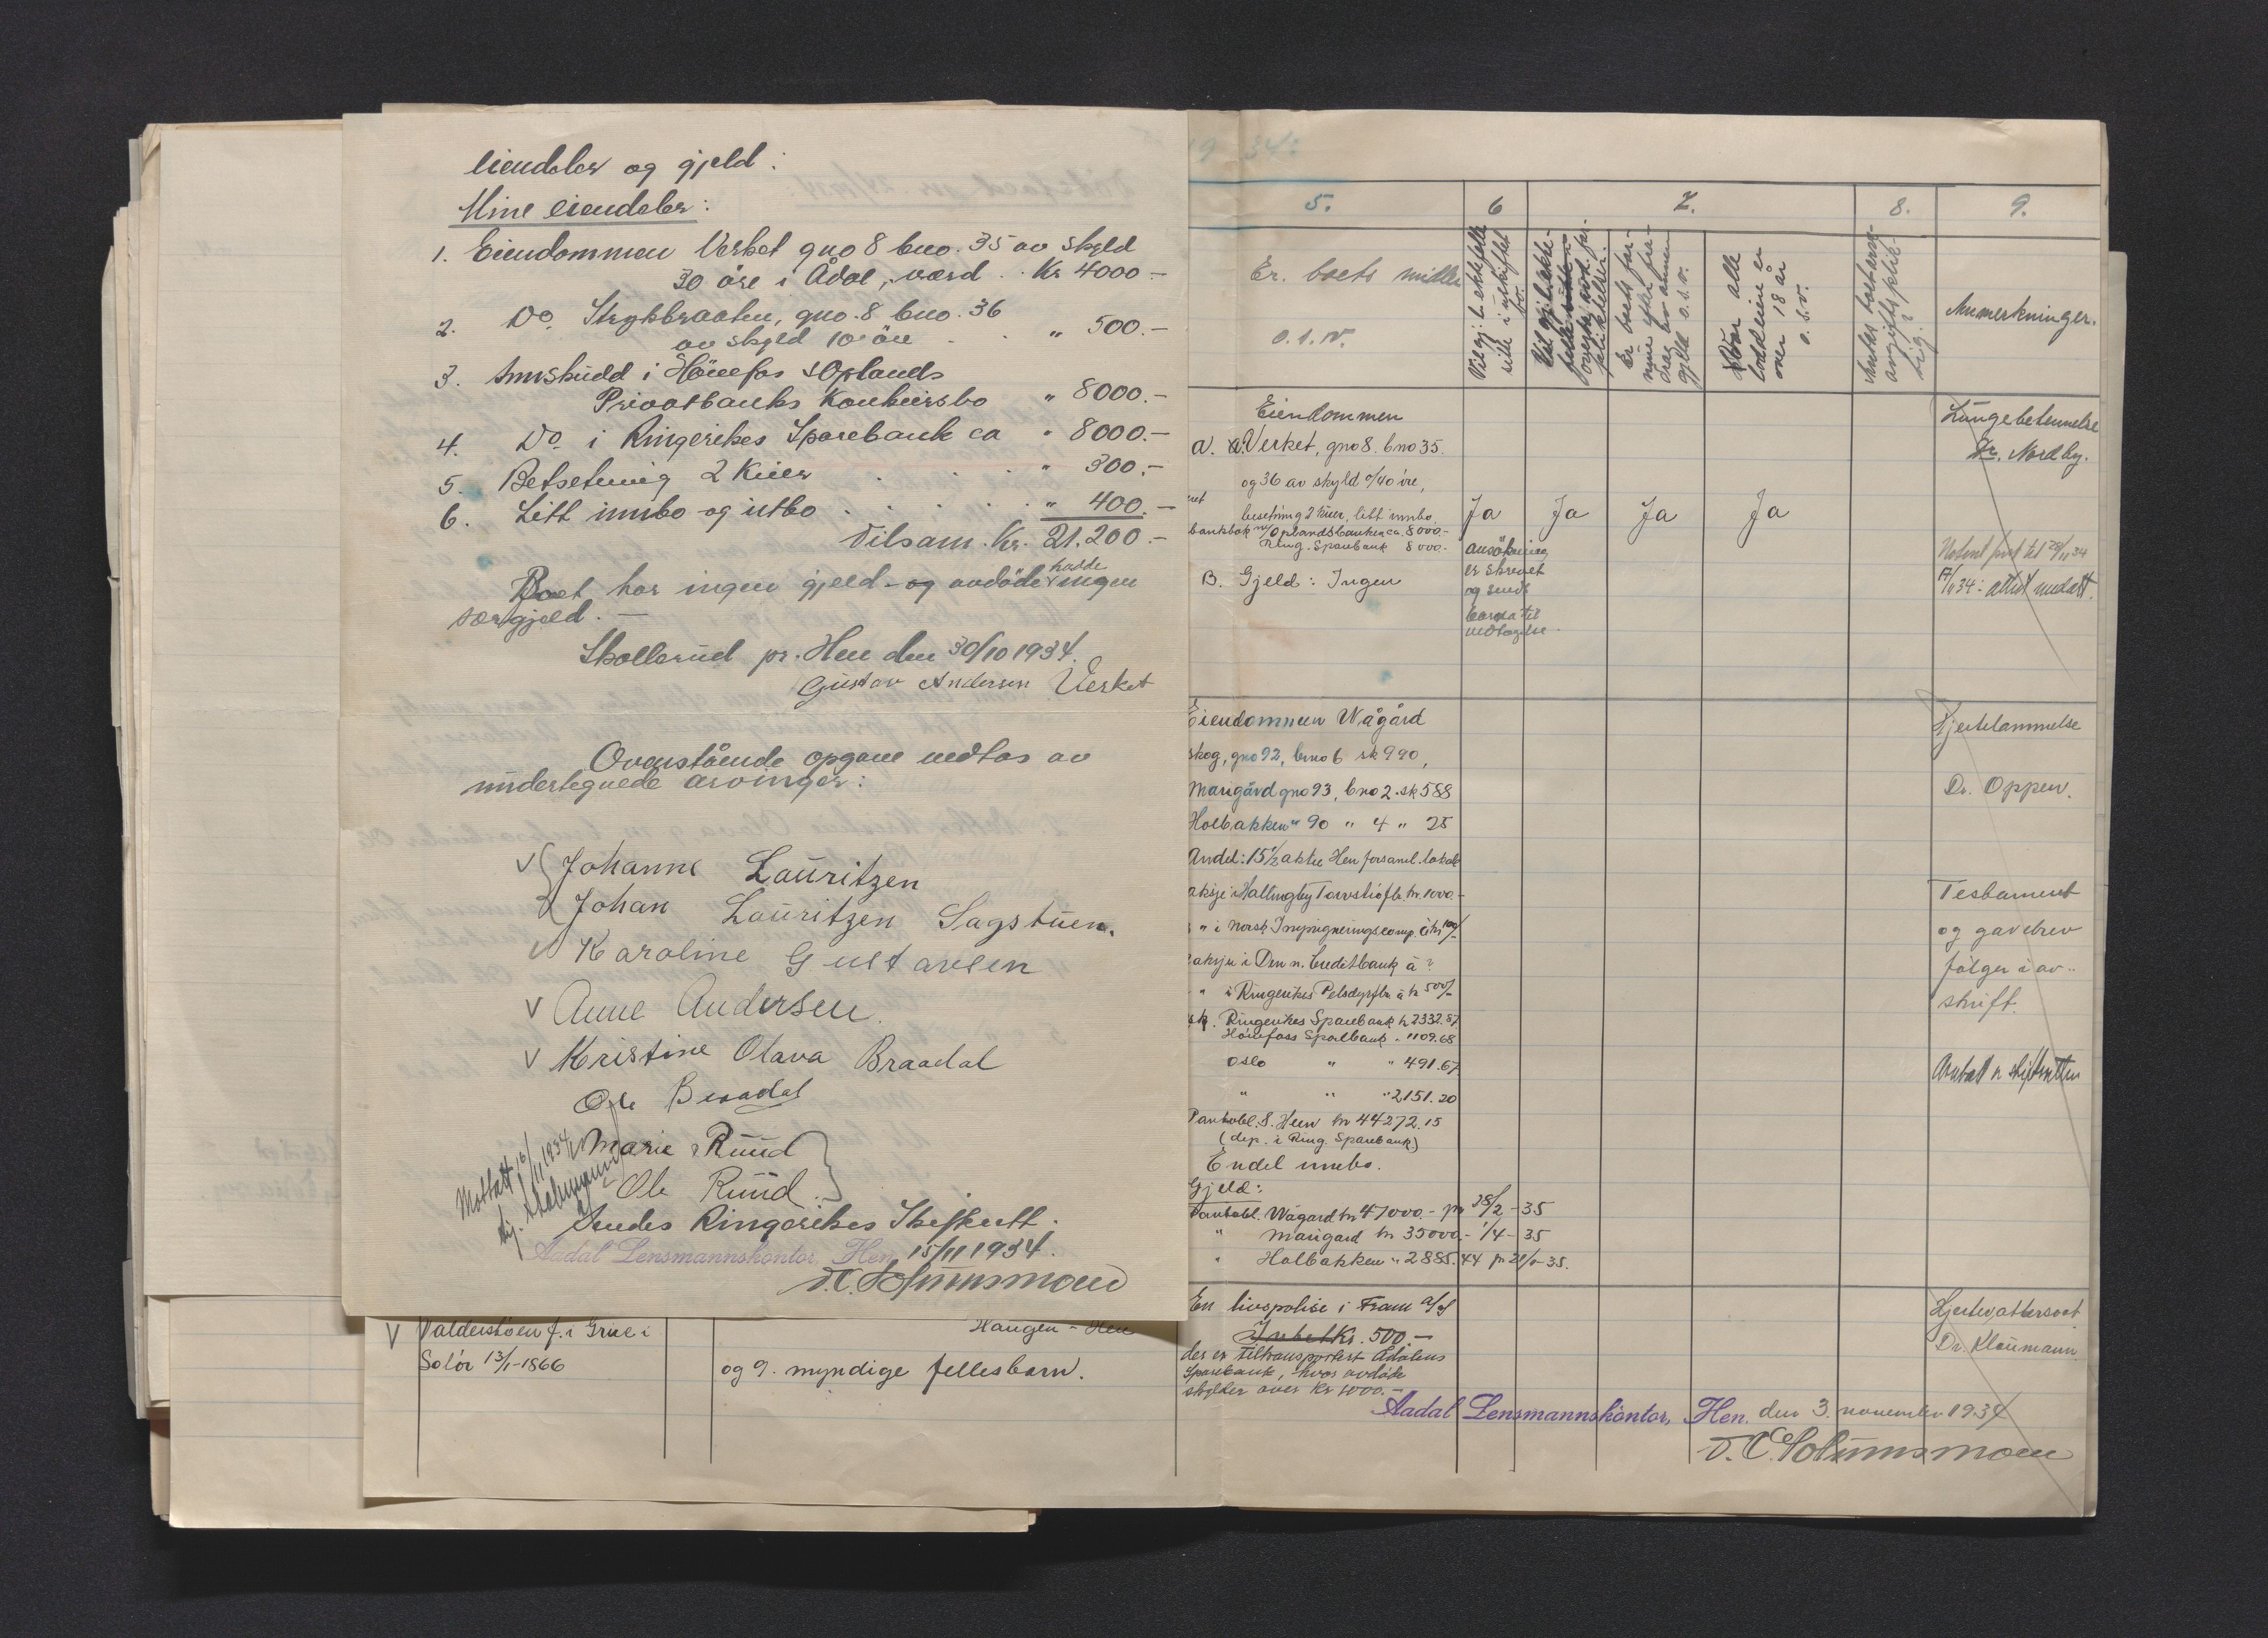 eiendeler og gjeld:
Mine eiendeler:
1. Eiendommen Verket gno 8 bno. 35 av skyld
30 öre i Ådal, værd . Kr 4000.-
2. Do. Strykbraaten, gno. 8 bno. 36
av skyld 10 öre . . " 500.-
3. Innskudd i Hönefos & Oplands
Privatbanks Konkursbo " 8000.-
4. Do i Ringerikes Sparebank ca " 8000.-
5. Betsetning 2 Kuer . . . " 300.-
6. Litt innbo og utbo . . . . . " 400.-
Tilsam. Kr. 21.200.-
Boet har ingen gjeld - og avdöde hadde ingen
særgjeld. -
Skollerud pr. Hen den 30/10 1934.
Gustav Andersen Verket
Ovenstående opgave vedtas av
undertegnede arvinger:
Johanne Lauritzen
Johan Lauritzen Sagstuen.
Karoline Gustavsen
V Anne Andersen
V Kristine Olava Braadal
Ole Braadal
Marie Ruud
Ole Ruud
Mottatt 16/11 1934
Sendes Ringerikes Skifterett.
Aadal Lensmannskontor, Hen, 15/11 1934.
V Valderstöen f. i Grue i
Solör 13/1-1866
Haugen - Hen
og 9. myndige fellesbarn.
19 34:
5. 6 7. 8. 9.
Er. boets midler
o.s.v.
Er boets for-
Når alle
loddeiere er
over 18 år
o.s.v.
Anmerkninger.
Eiendommen
A. Verket, gno 8. bno 35.
og 36 av skyld o/40 öre,
besetning 2 kuer, litt innbo
bankbok m/Oplandsbanken ca. 8000.-
Ring. Sparebank 8000.-
B. Gjeld: Ingen
Ja Ja Ja Ja
ansökning
er skrevet
og sendt
barna til
vedtagelse.
Lungebetennelse
Dr. Nordby.
Eiendommen Wågård
skog, gno 92, bno 6 sk 990,
Maugård gno 93, bno 2. sk 588
Holbakken " 90 " 4 " 25
Andel: 15 1/2 aktie Hen forsaml. lokale
aksje i Hallingby Torvströfb. kr. 1000.-
" i Norsk Impregneringscomp. à kr 100/-
aksjer i Den n. Creditbank à ?
" i Ringerikes Pelsdyrfb. à kr 500/-
Ringerikes Sparebank kr 2332.87
Hönefoss Sparebank - 1109.68
Oslo " " 491.67
" " " 2151.20
Pantobl. S. Heen kr 44272.15
(dep. i Ring. Sparebank)
Endel innbo.
Gjeld:
Pantobl. Wågard kr 47000.- pr 28/2 - 35
" Maugard kr 35000.- 1/4 - 35
" Holbakken " 2885.44
Hjertelammelse
Dr. Oppen.
Testament
og gavebrev
fölger i av-
skrift.
En livspolise i Fram A/S
Kr. 500.-
der er tiltransportert Ådalens
Sparebank, hvor avdöde
skylder over Kr 1000.-
Dr. Klaumann.
Aadal Lensmannskontor, Hen. den 3. november 1934